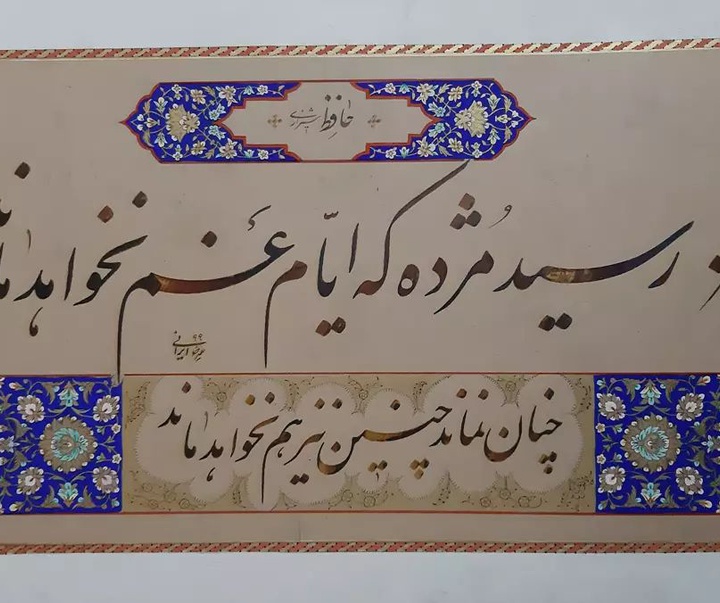 حافظ شیرازی
رسید مُژده که ایّام غَم نخواهد ماند
۹۹
ایرانی
چنان نماند چنین نیز هم نخواهد ماند